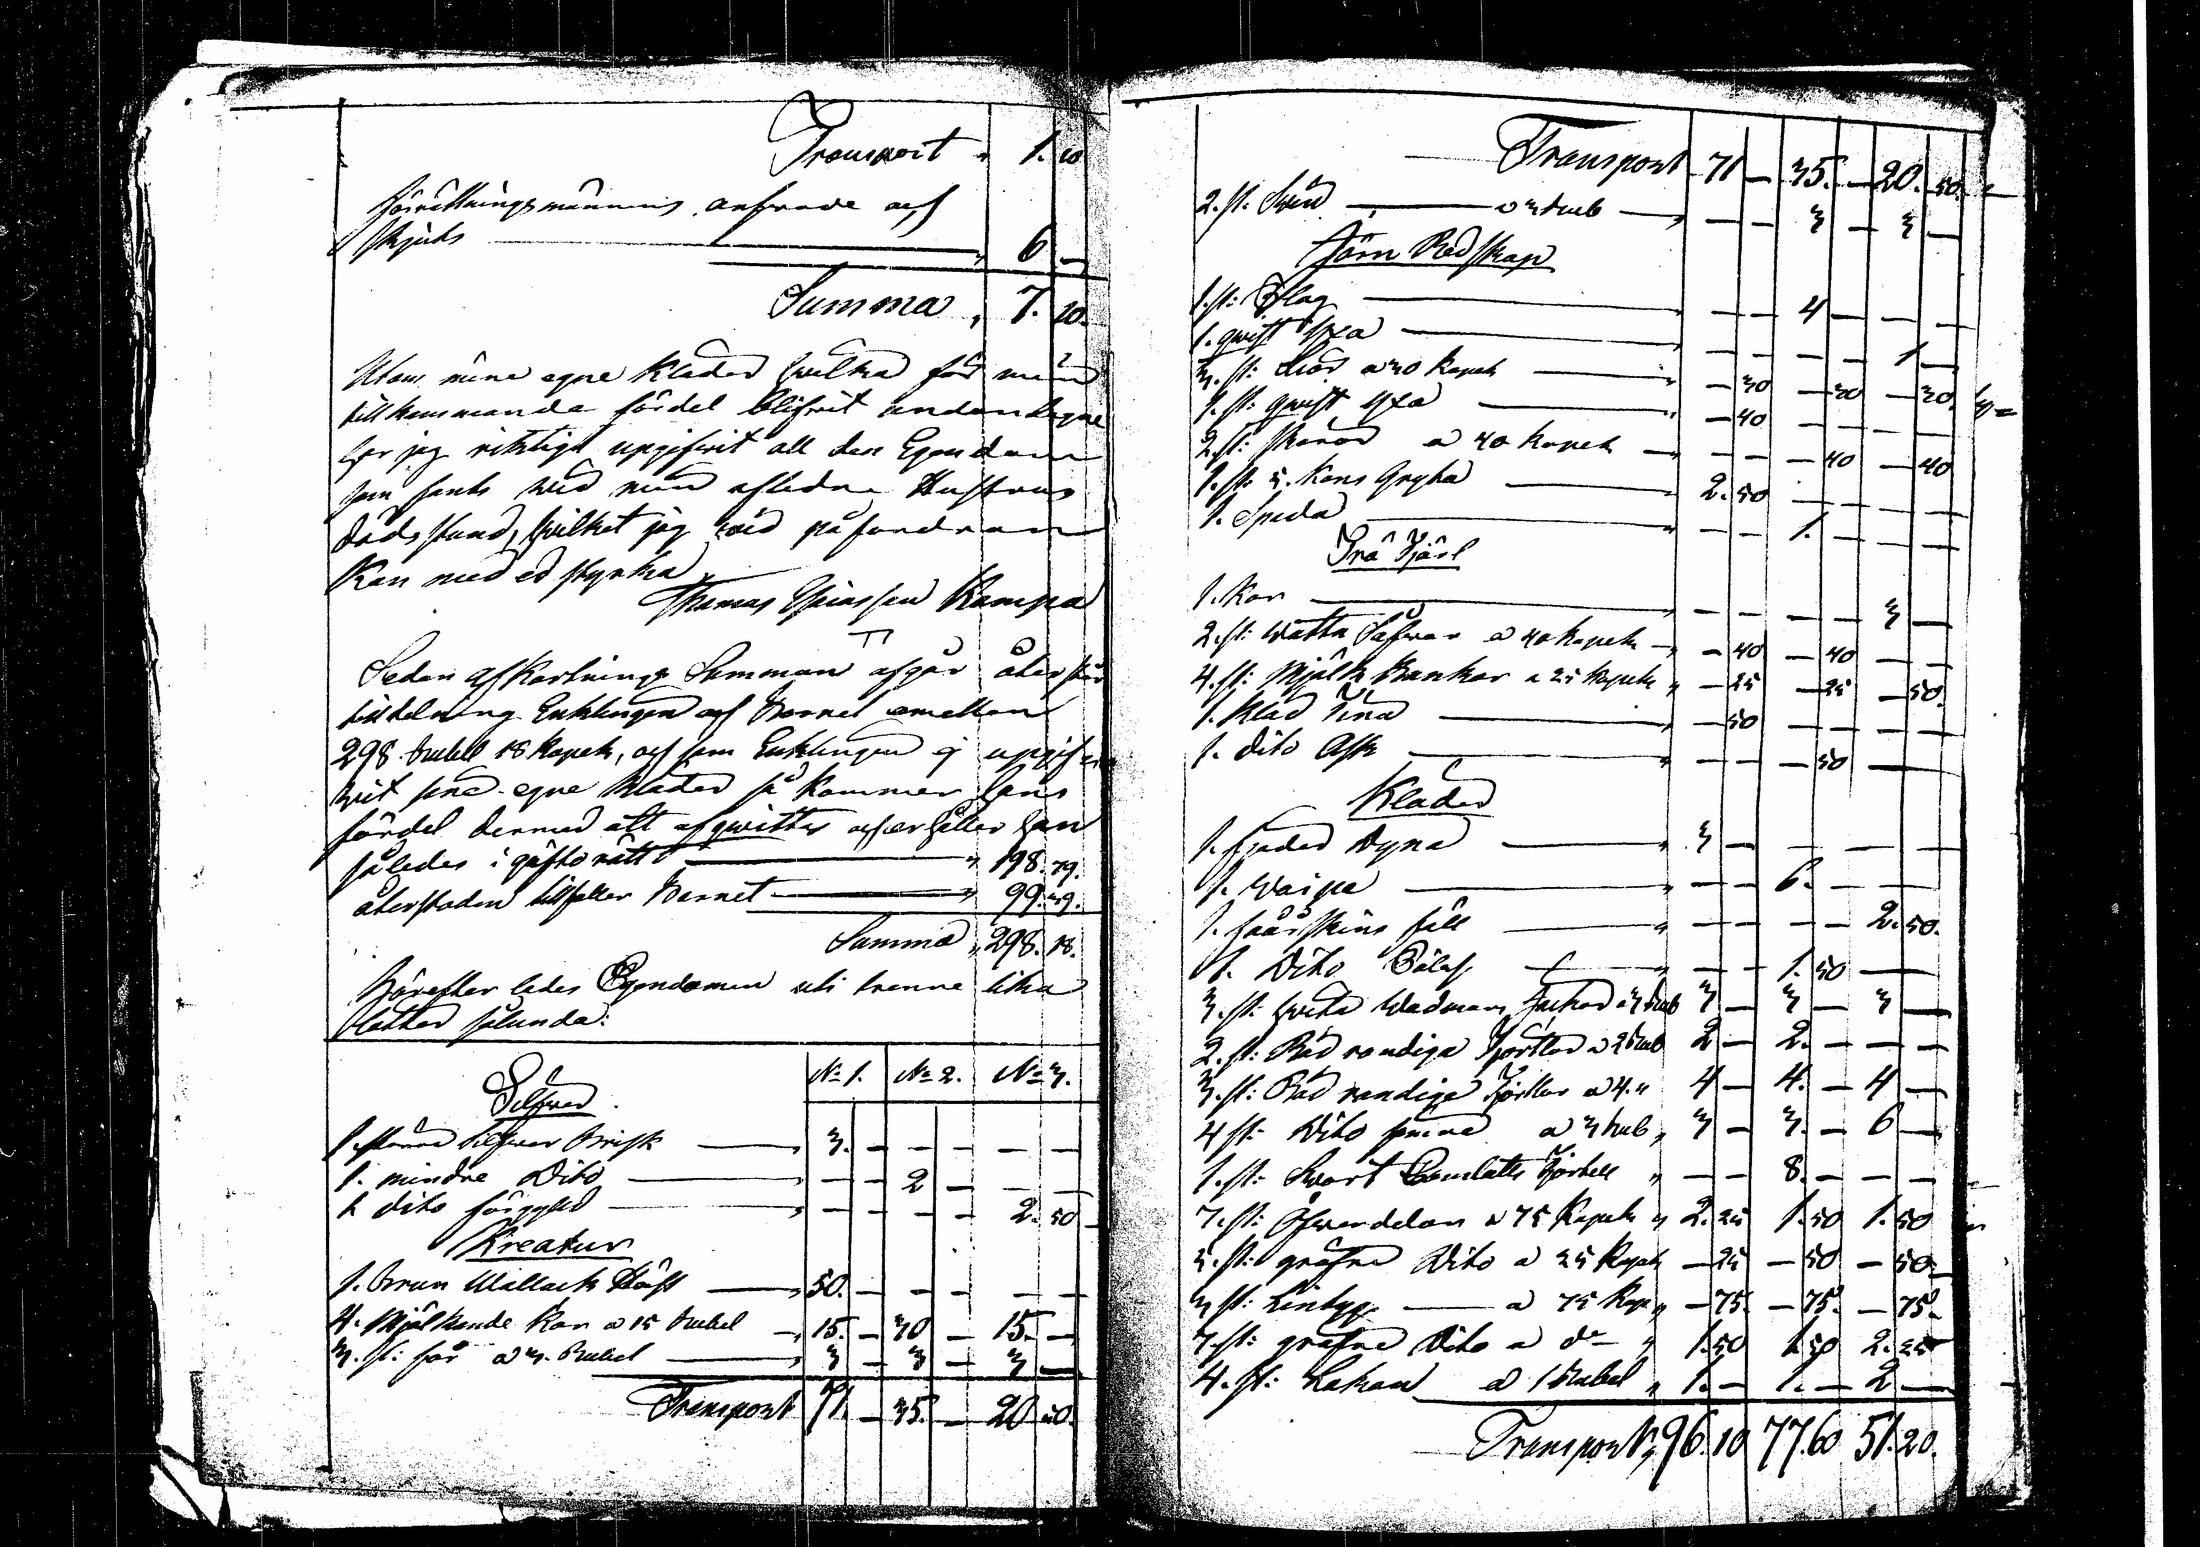 Transport " 1. 20
förrättningsmännens arfvode och
skjuts 6. —
Summa " 7. 20.
Utom mina egne kläder hvilka för min
tillkommande fördel blifvit undantagne
har jag riktigt uppgifvit all den Egendom
som fants vid min afledne Hustrus
dödsstund, hvilket jag vid påfordran
kan med ed styrka
Thomas Kampa
Sedan afkortnings Summan afgår återstår
till delning Enklingen och Barnet emellan
298. Rubel 18 Kopek, och som Enklingen ej uppgif
vit sina egne kläder så kommer hans
fördel dermed att afqvittas och erhåller han
således i giftorätt " 198. 79.
återstoden tillfaller Barnet " 99. 39.
Summa " 298. 18.
Härefter lades Egendomen uti trenne lika
lotter sålunda:
No 1. No 2. No 3.
Silfver
1. större silfver Brisk " 3. — — — — —
1. mindre Dito " — — 2 — — —
1. dito förgyld " — — — — 2. 50
Kreatur
1. Brun Wallack Häst " 50. — — — — —
4. Mjölkande kor a 15 Rubel " 15. — 30 — 15. —
3. st: får a 3. Rubel " 3 — 3 — 3 —
Transport 71. — 35. — 20. 50.
Transport 71 — 35. — 20. 50.
2. st: Svin a 3 Rub " — — 3 — 3 —
Järn Redskap
1. st: Plog " — — 4 — — —
1. qvist yxa " — — — — 1 —
3. st: Liar a 30 Kopek " — 30 — 30 — 30.
1. st: qvist yxa " — 40 — — — —
2. st: skäror a 40 kopek " — — — 40 — 40
1. st: 5. kans Gryta " 2. 50 — — — —
1. Spada " — — 1. — — —
Trä Kjäril
1. Kar " — — — — 3 —
2. st: Watten Såfvar a 40 kopek " — 40 — 40 — —
4. st: Mjölk Bunkar a 25 Kopek " — 25 — 25 — 50.
1. Kläd Tina " — 50 — — — —
1. dito Ask " — — — 50 — —
Kläder
1. fjeder Dyna " 3 — — — — —
1. Waipa " — — 6. — — —
1. fårskins fäll " — — — — 2. 50.
1. Dito Päls " — — 1. 50 — —
3. st: hvita Wadmans a 3 Rub 3 — 3 — 3 —
2. st: Röd randiga Kjortlar a 2 Rub 2 — 2. — — —
3. st: Röd randige Kjortlar a 4. " 4 — 4. — 4 —
4 st: Dito a 3 Rub " 3 — 3. — 6 —
1. st: Svart Camlotts Kjortell " — — 8. — — —
7. st: Öfverdelar a 75 Kopek " 2. 25 1. 50 1. 50
5. st: gröfre Dito a 25 Kopek — 25 — 50 — 50.
3 st: Lintyg a 75 Kop " — 75. — 75. — 75.
7. st: gröfre Dito a do " 1. 50 1. 50 2. 25
4. st: Lakan a 1 Rubel " 1. — 1. — 2 —
Transport " 96. 10 77. 60 51. 20.